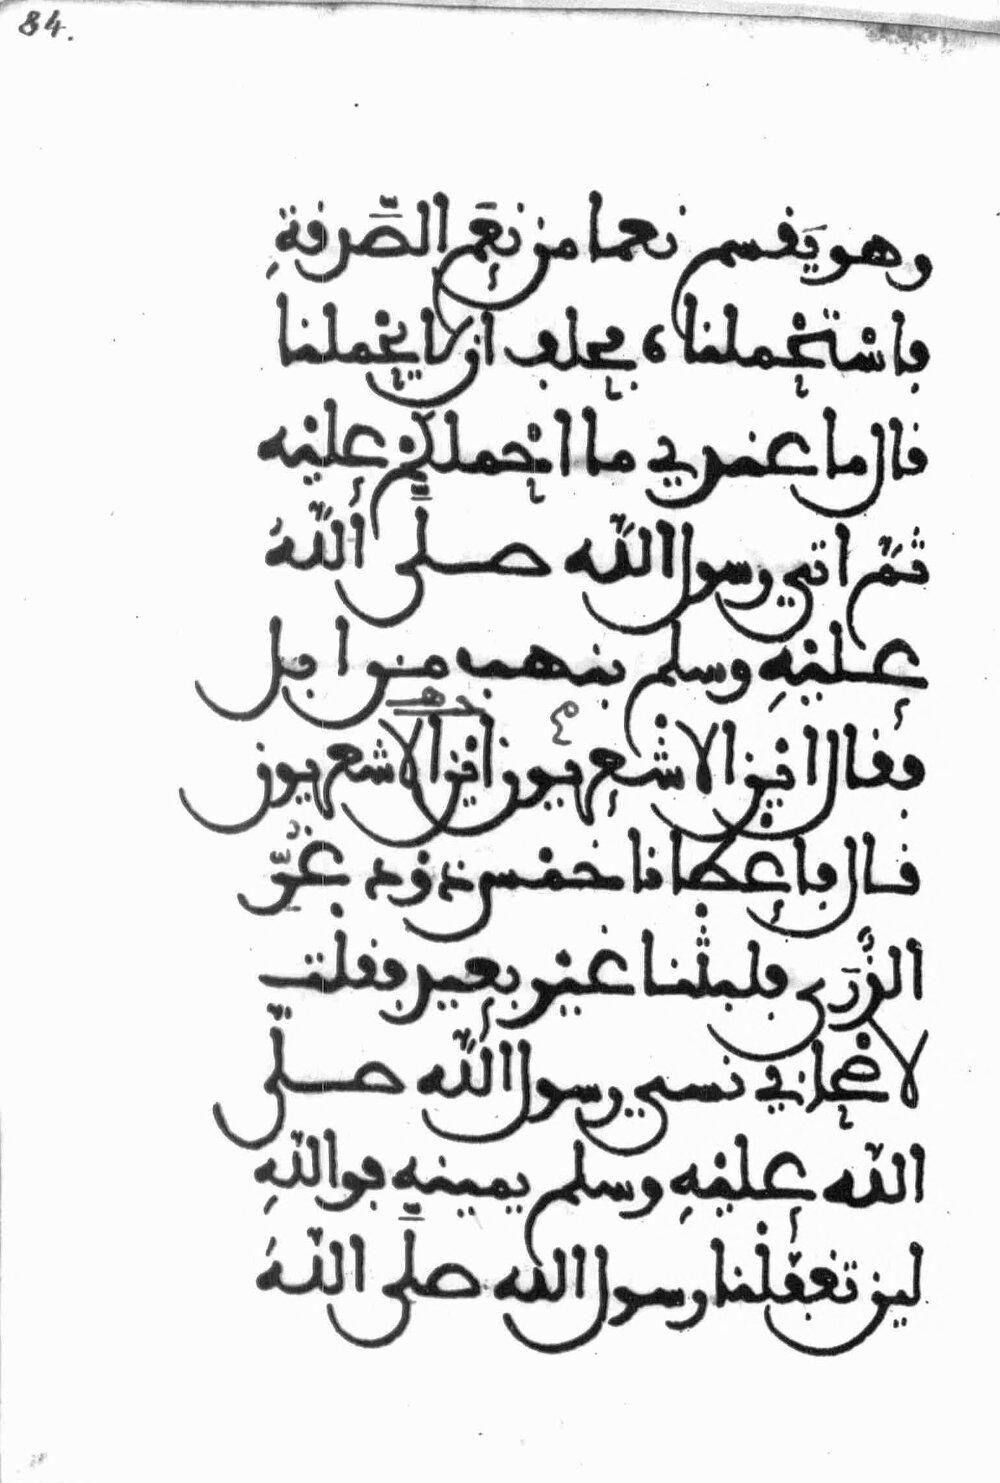 84.
وهو يَقسم نعما من نِعَمِ الصَّدقةِ
فاسْتَحْملناه فحلف ان لا يَحْملنا
قال ما عندي ما احْملكم علَيْه
ثمَّ اتى رسول اللَّه صلَّى اللَّهُ
علَيْهِ وسلم بنهب من ابل
فقال اَيْن الاشْعِريون اَيْن الاشعريون
قال فاعْطانا خمْس ذوْد غُرِّ
الذُّرَى فلبثْنا غيْر بعِيد فقلْت
لاصْحابي نسي رسول اللَّه صلَّى
اللَّه علَيْهِ وسلم يمينه فواللَّهِ
لين تغفَّلْنا رسول الله صلَّى اللَّهُ